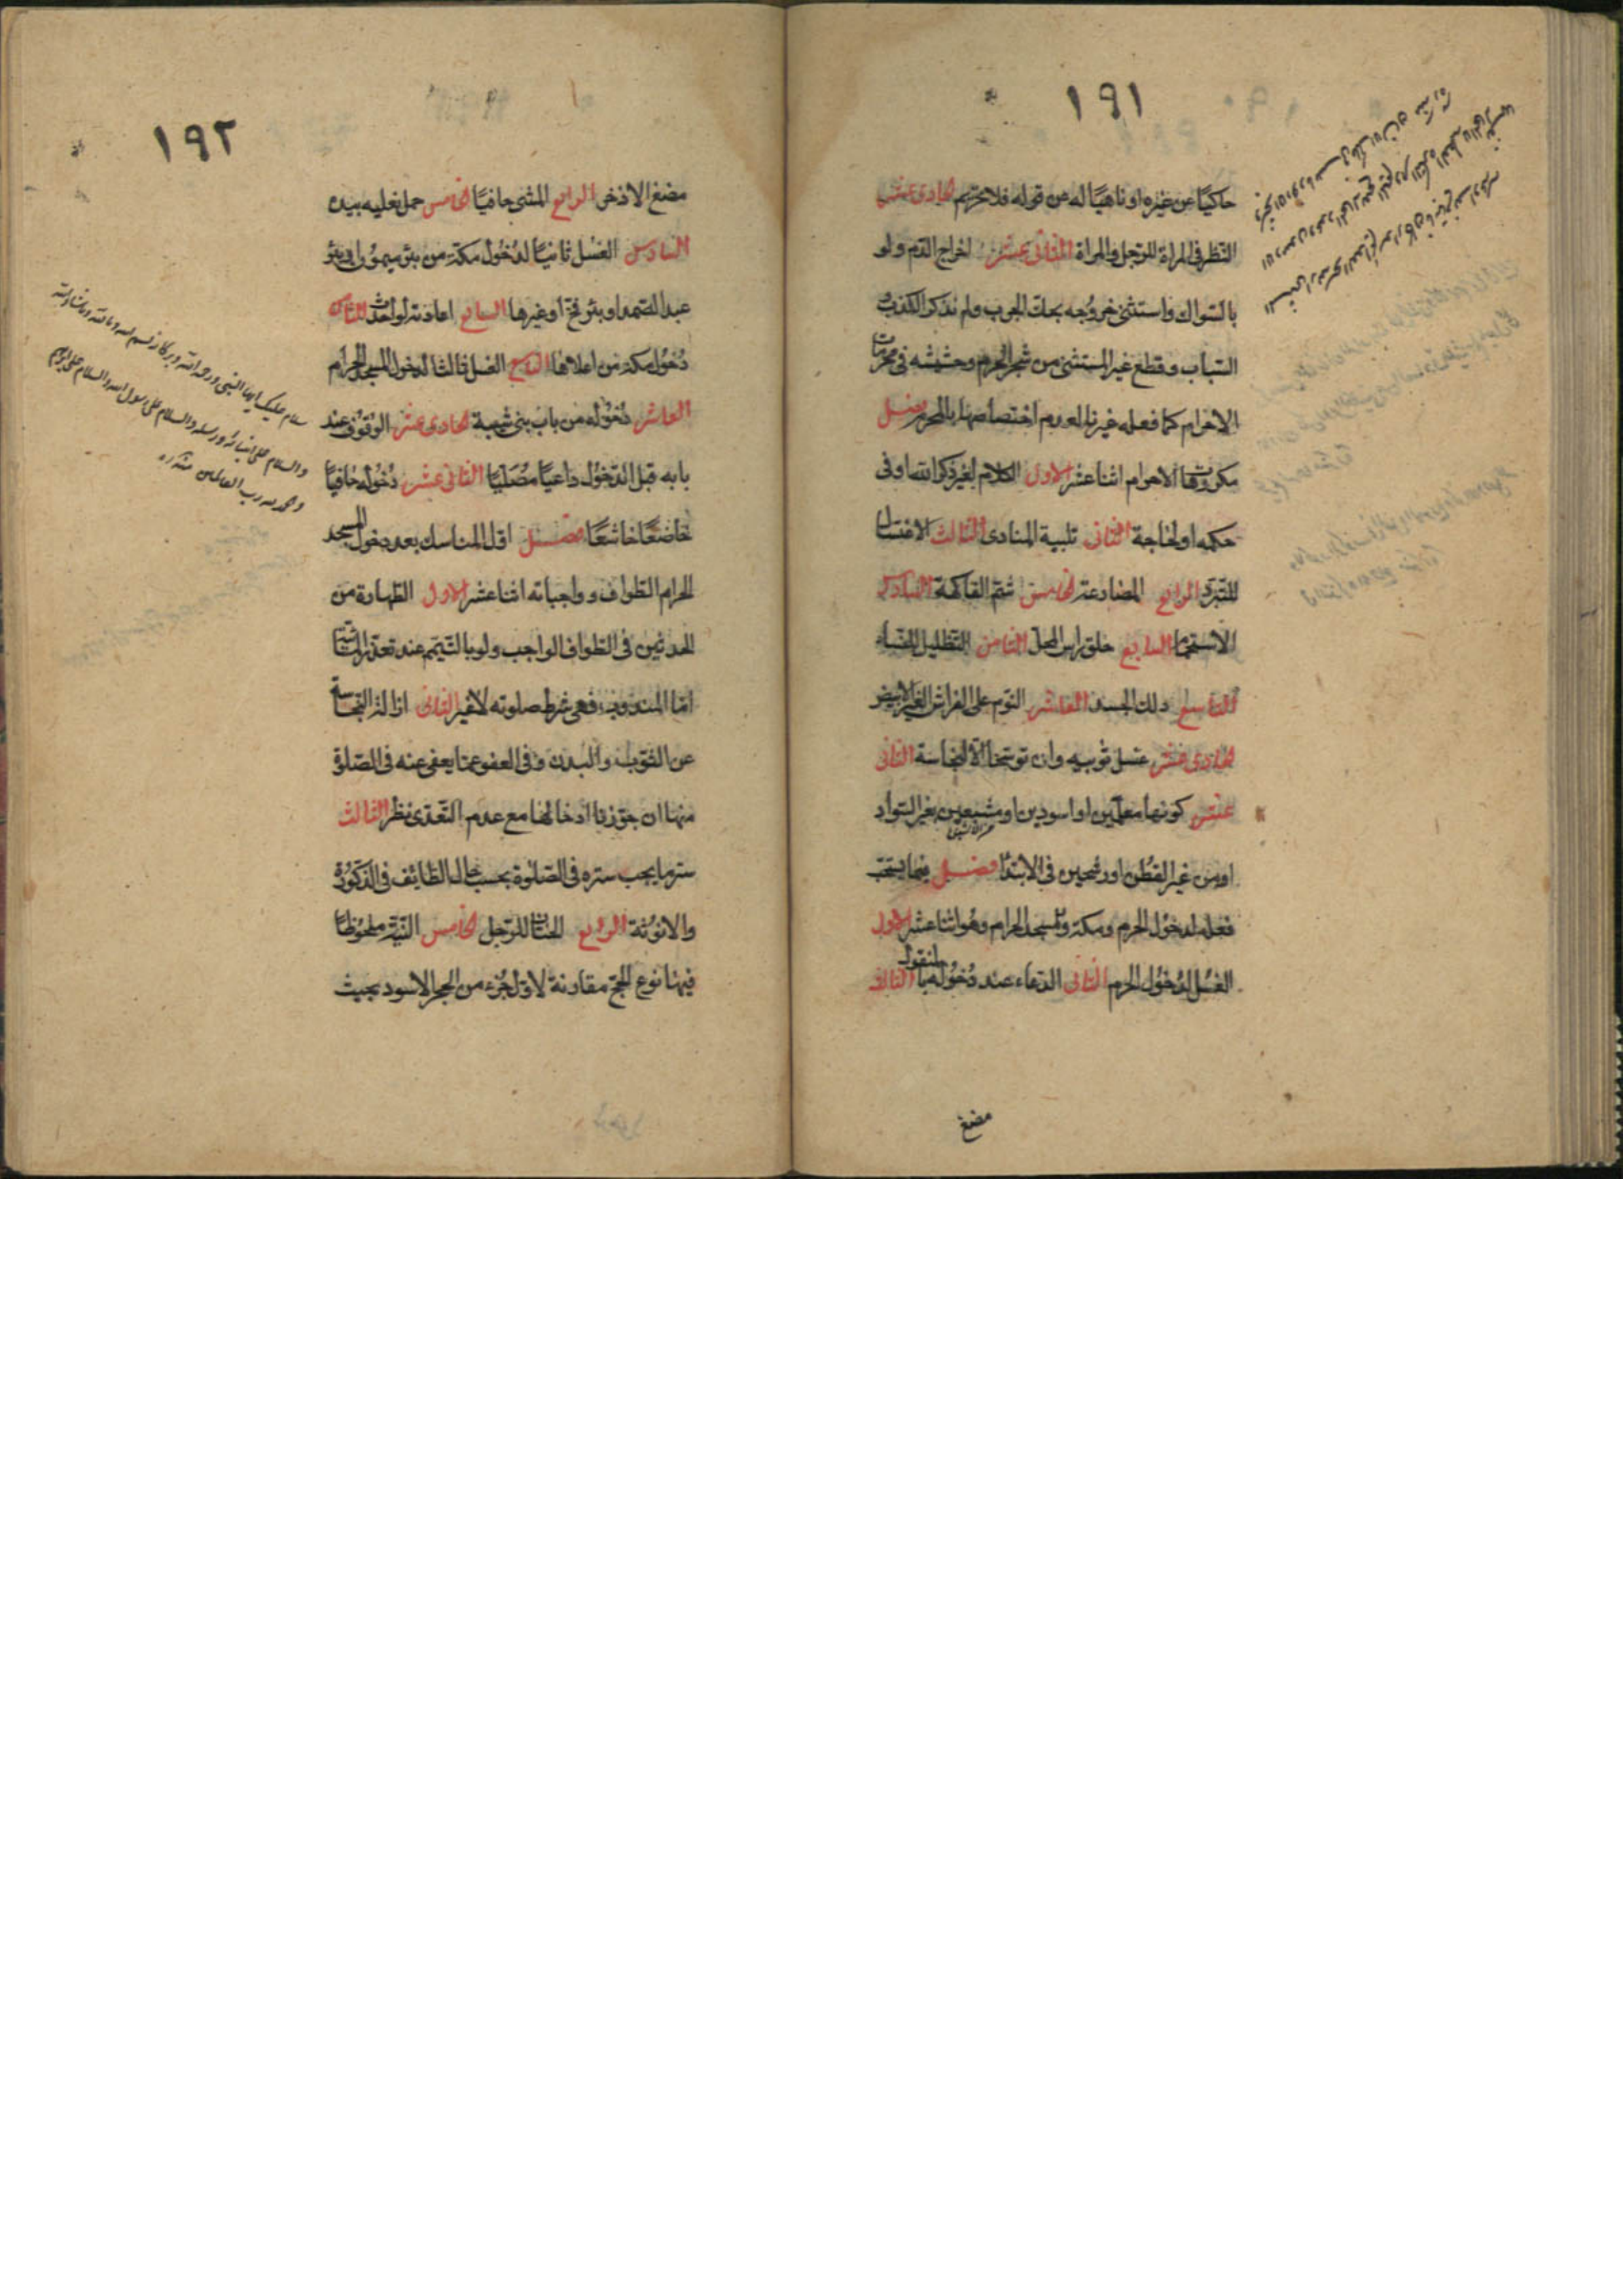 ١٩١
حاكيًا عن غيره او ناهيًا له عن قوله فلا تحريم الحادى عشر
النّظر فى المرآة للرّجل والمرأة الثّانى عشر اخراج الدّم ولو
بالسّواك واستثنى خروجه بحك الجرب ولم نذكر الكذب
السّباب وقطع غير المستثنى من شجر الحرم وحشيشه فى محرمات
الاحرام كما فعله غيرنا لعدم اختصاصها بالمحرم فصل
مكروهات الاحرام اثنا عشر الاول الكلام لغير ذكر الله او فى
حكمه او لحاجة الثّانى تلبية المنادى الثّالث الاغتسال
للتّبرّد الرابع المصارعة الخامس شمّ الفاكهة السّادس
الاستحمام السابع حلق راس المحلّ الثّامن التظليل للنساء
التاسع دلك الجسد العاشر النّوم على الفراش الغير الابيض
الحادى عشر غسل ثوبيه وان توسّخا الّا لنجاسة الثّانى
عشر كونهما معلّمين او اسودين او مشبعين بغير السّواد
او من غير القطن او وسخين فى الابتداء فصل فيما يستحب
فعله لدخول الحرم ومكة والمسجد الحرام وهو اثنا عشر الاول
الغسل لدخول الحرم الثّانى الدّعاء عند دخوله بالمنقول الثالث
مضغ
١٩٢
مضغ الاذخر الرابع المشى حافيًا الخامس حمل نعليه بيده
السّادس الغسل ثانيًا لدخول مكة من بئر ميمون او بئر
عبد الصّمد او بئر فخ او غيرها السابع اعادته لو احدث الثّامن
دخول مكة من اعلاها التاسع الغسل ثالثا لدخول المسجد الحرام
العاشر دخوله من باب بنى شيبة الحادى عشر الوقوف عند
بابه قبل الدّخول داعيًا مصلّيًا الثّانى عشر دخوله حافيًا
خاضعًا خاشعًا فصل اوّل المناسك بعد دخول المسجد
الحرام الطّواف وواجباته اثنا عشر الاول الطّهارة من
الحدثين فى الطّواف الواجب ولو بالتّيمّم عند تعذر المائيّة
امّا المندوب فهى شرط صلوته لا غير الثّانى ازالة النّجاسة
عن الثّوب والبدن وفى العفو عمّا يعفى عنه فى الصّلوة
منها ان جوّزنا ادخالها مع عدم التّعدّى نظر الثّالث
ستر ما يجب ستره فى الصّلوة بحسب حال الطّائف فى الذّكورة
والانوثة الرابع الختان للرّجل الخامس النيّة ملحوظًا
فيها نوع الحجّ مقارنة لاوّل جزء من الحجر الاسود بحيث
سلام عليك ايها النبى ورحمة الله وبركاته بسم الله وبالله وما شاء الله
والسلام على انبيائه ورسله والسلام على رسول الله والسلام على ابرهيم
والحمد لله رب العالمين